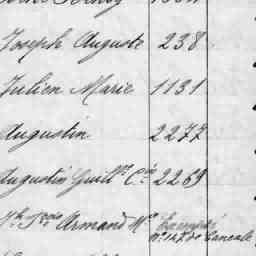 Joseph Auguste 238
Julien Marie 1131
Augustin 2277
Augustin Guill^me C^in 2269
Armand M^ie Exempté
n° 147 de Cancale